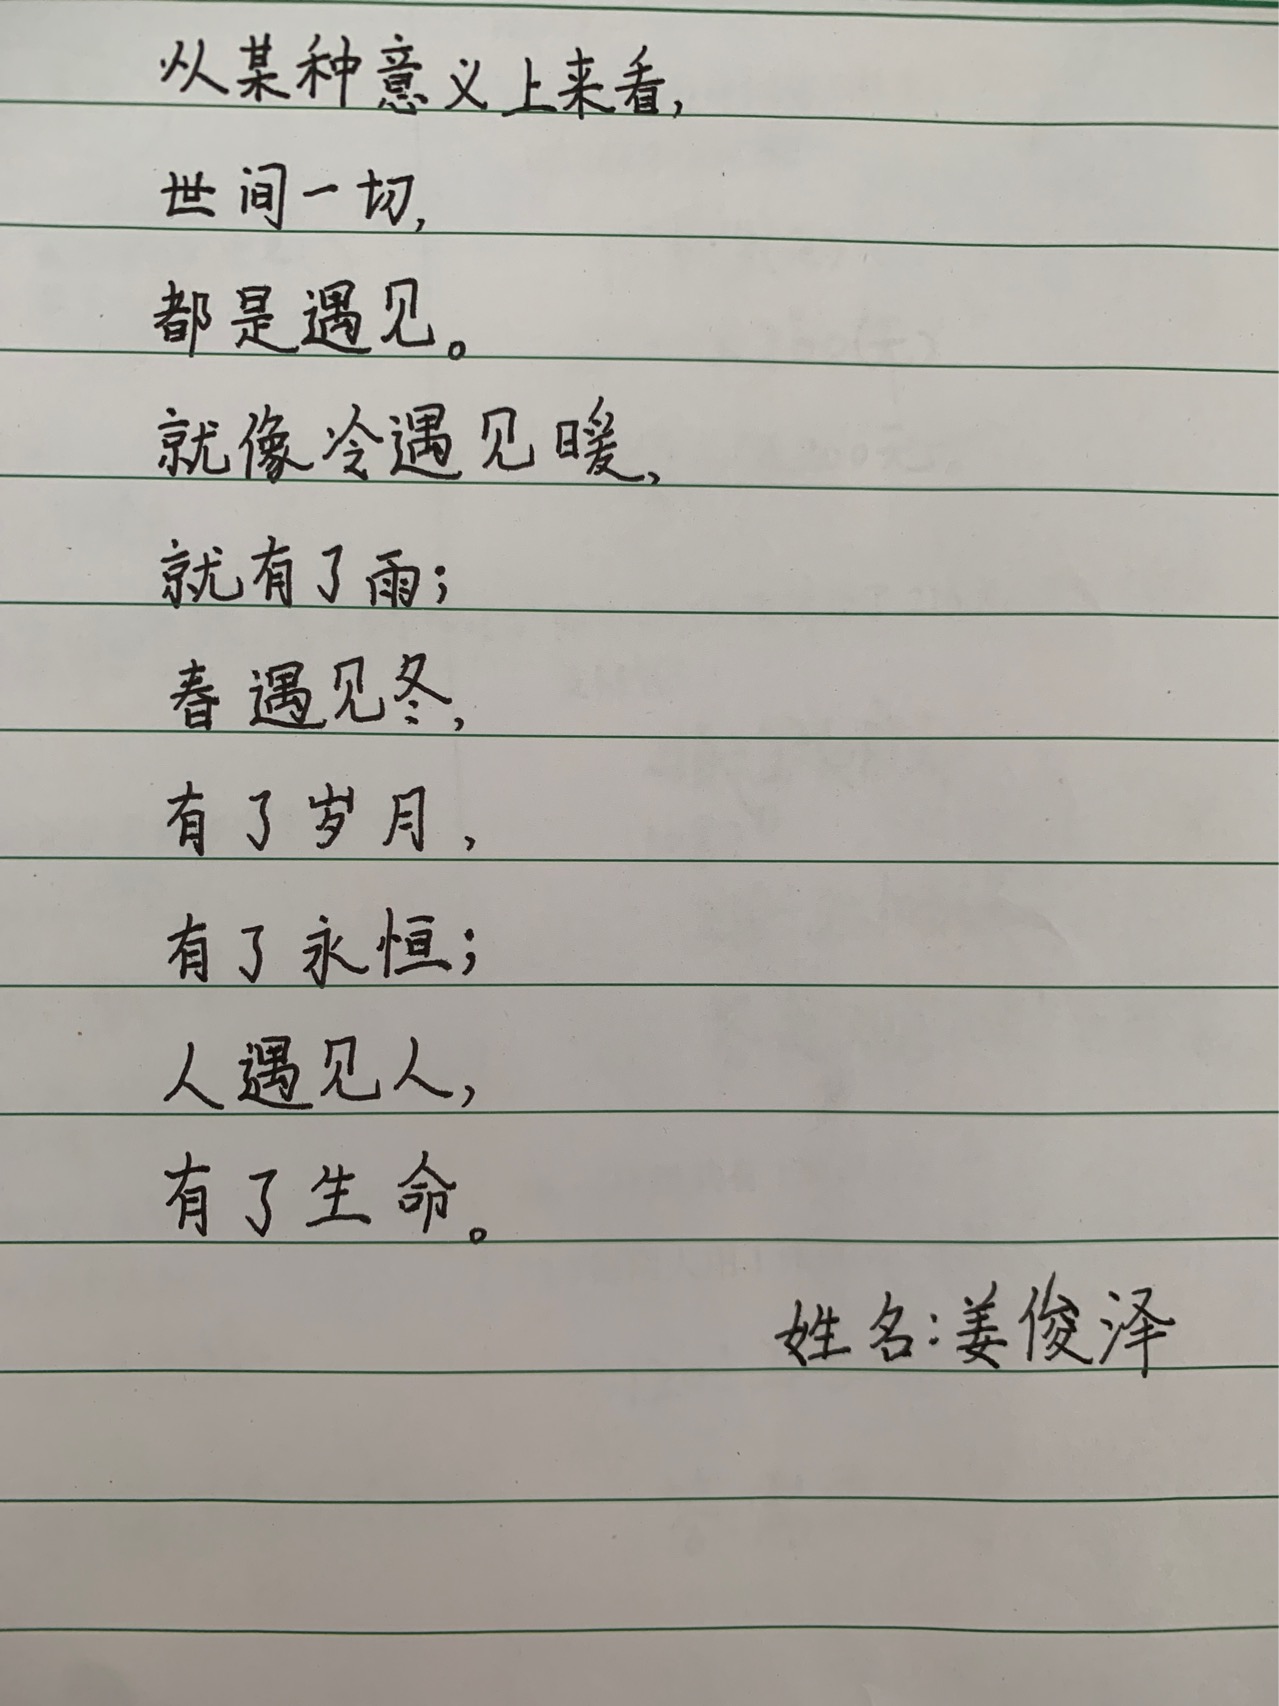 从某种意义上来看,
世间一切,
都是遇见。
就像冷遇见暖,
就有了雨;
春遇见冬,
有了岁月,
有了永恒;
人遇见人,
有了生命。
姓名:姜俊泽